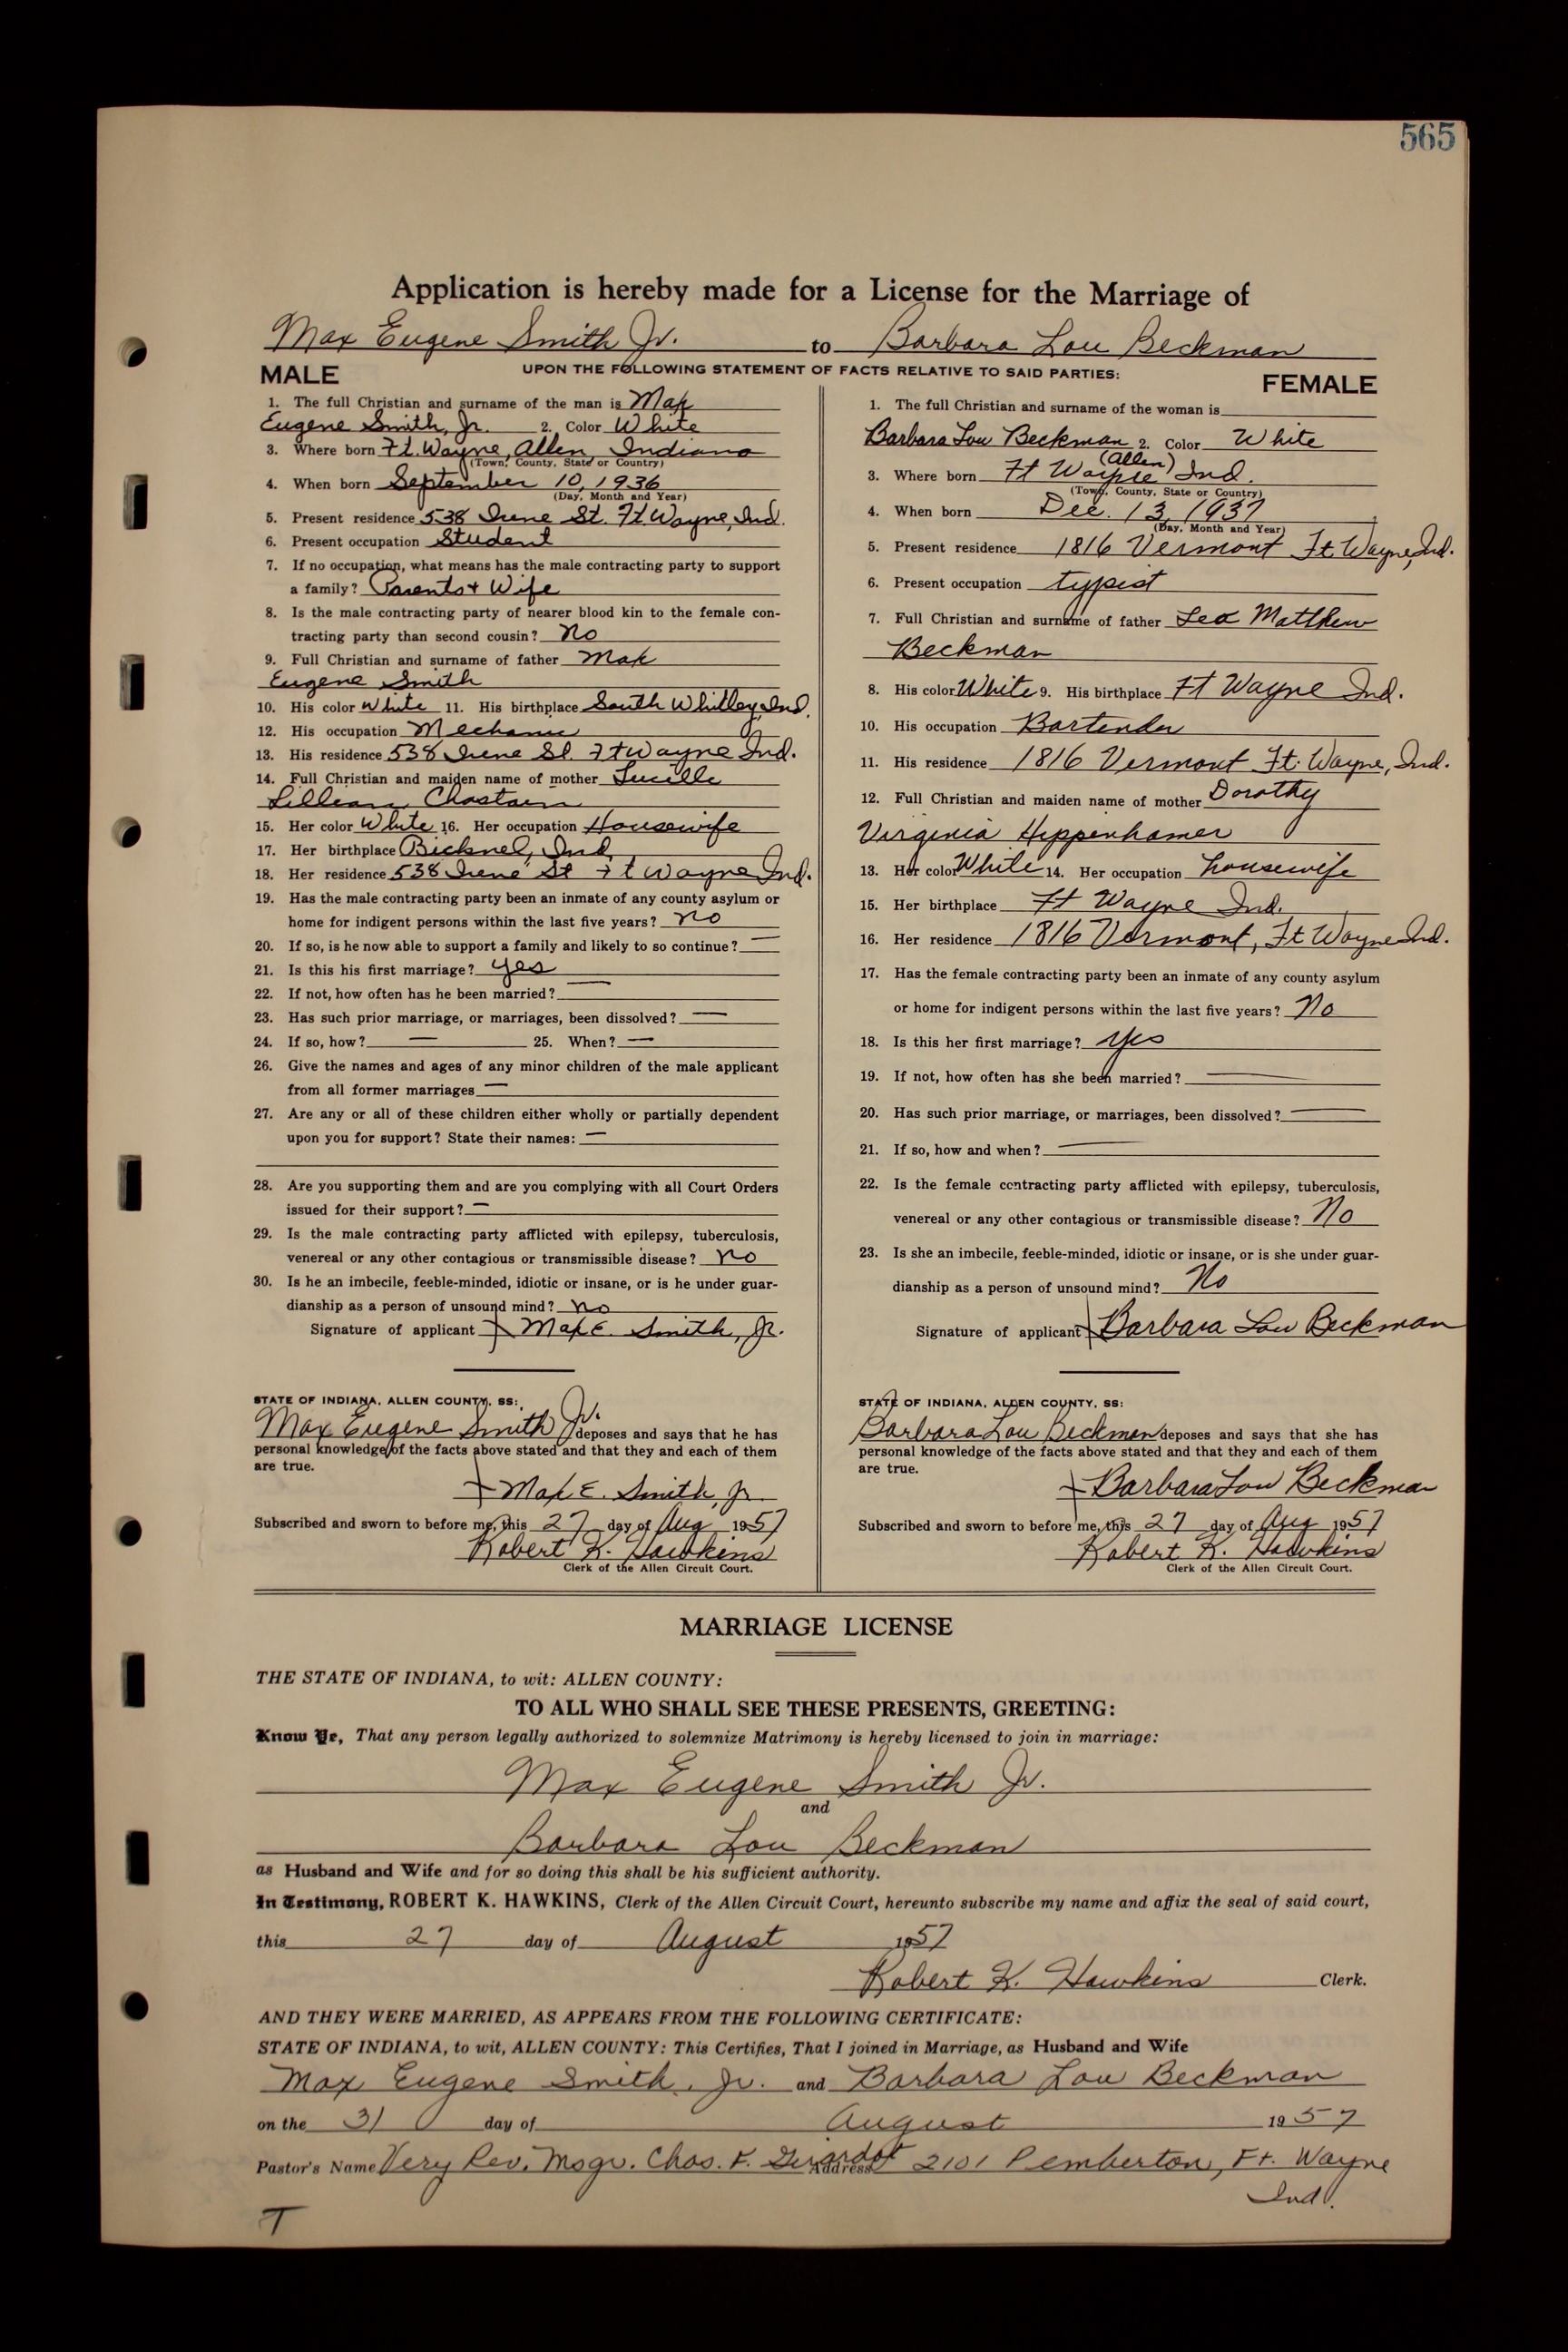 565
Application is hereby made for a License for the Marriage of
Max Eugene Smith Jr. to Barbara Lou Beckman
UPON THE FOLLOWING STATEMENT OF FACTS RELATIVE TO SAID PARTIES:
MALE
1. The full Christian and surname of the man is Max
Eugene Smith, Jr. 2. Color White
3. Where born Ft. Wayne, Allen, Indiana
(Town, County, State or Country)
4. When born September 10, 1936
(Day, Month and Year)
5. Present residence 538 Irene St. Ft Wayne, Ind.
6. Present occupation Student
7. If no occupation, what means has the male contracting party to support
a family? Parents & Wife
8. Is the male contracting party of nearer blood kin to the female con-
tracting party than second cousin? No
9. Full Christian and surname of father Max
Eugene Smith
10. His color White 11. His birthplace South Whitley, Ind.
12. His occupation Mechanic
13. His residence 538 Irene St. Ft Wayne Ind.
14. Full Christian and maiden name of mother Lucille
Lillian Chastain
15. Her color White 16. Her occupation Housewife
17. Her birthplace Bicknel, Ind.
18. Her residence 538 Irene St Ft Wayne Ind.
19. Has the male contracting party been an inmate of any county asylum or
home for indigent persons within the last five years? No
20. If so, is he now able to support a family and likely to so continue? —
21. Is this his first marriage? yes
22. If not, how often has he been married? —
23. Has such prior marriage, or marriages, been dissolved? —
24. If so, how? — 25. When? —
26. Give the names and ages of any minor children of the male applicant
from all former marriages —
27. Are any or all of these children either wholly or partially dependent
upon you for support? State their names: —
28. Are you supporting them and are you complying with all Court Orders
issued for their support? —
29. Is the male contracting party afflicted with epilepsy, tuberculosis,
venereal or any other contagious or transmissible disease? No
30. Is he an imbecile, feeble-minded, idiotic or insane, or is he under guar-
dianship as a person of unsound mind? No
Signature of applicant Max E. Smith, Jr.
STATE OF INDIANA, ALLEN COUNTY, SS:
Max Eugene Smith Jr. deposes and says that he has
personal knowledge of the facts above stated and that they and each of them
are true.
Max E. Smith, Jr.
Subscribed and sworn to before me, this 27 day of Aug 1957
Robert K. Hawkins
Clerk of the Allen Circuit Court.
FEMALE
1. The full Christian and surname of the woman is
Barbara Lou Beckman 2. Color White
(Allen)
3. Where born Ft Wayne Ind.
(Town, County, State or Country)
4. When born Dec. 13, 1937
(Day, Month and Year)
5. Present residence 1816 Vermont Ft. Wayne, Ind.
6. Present occupation typist
7. Full Christian and surname of father Leo Matthew
Beckman
8. His color White 9. His birthplace Ft Wayne Ind.
10. His occupation Bartender
11. His residence 1816 Vermont Ft. Wayne, Ind.
12. Full Christian and maiden name of mother Dorothy
Virginia Hippenhamer
13. Her color White 14. Her occupation housewife
15. Her birthplace Ft Wayne Ind.
16. Her residence 1816 Vermont, Ft Wayne Ind.
17. Has the female contracting party been an inmate of any county asylum
or home for indigent persons within the last five years? No
18. Is this her first marriage? Yes
19. If not, how often has she been married? —
20. Has such prior marriage, or marriages, been dissolved? —
21. If so, how and when? —
22. Is the female contracting party afflicted with epilepsy, tuberculosis,
venereal or any other contagious or transmissible disease? No
23. Is she an imbecile, feeble-minded, idiotic or insane, or is she under guar-
dianship as a person of unsound mind? No
Signature of applicant Barbara Lou Beckman
STATE OF INDIANA, ALLEN COUNTY, SS:
Barbara Lou Beckman deposes and says that she has
personal knowledge of the facts above stated and that they and each of them
are true.
Barbara Lou Beckman
Subscribed and sworn to before me, this 27 day of Aug 1957
Robert K. Hawkins
Clerk of the Allen Circuit Court.
MARRIAGE LICENSE
THE STATE OF INDIANA, to wit: ALLEN COUNTY:
TO ALL WHO SHALL SEE THESE PRESENTS, GREETING:
Know Ye, That any person legally authorized to solemnize Matrimony is hereby licensed to join in marriage:
Max Eugene Smith Jr.
and
Barbara Lou Beckman
as Husband and Wife and for so doing this shall be his sufficient authority.
In Testimony, ROBERT K. HAWKINS, Clerk of the Allen Circuit Court, hereunto subscribe my name and affix the seal of said court,
this 27 day of August 1957
Robert K. Hawkins Clerk.
AND THEY WERE MARRIED, AS APPEARS FROM THE FOLLOWING CERTIFICATE:
STATE OF INDIANA, to wit, ALLEN COUNTY: This Certifies, That I joined in Marriage, as Husband and Wife
Max Eugene Smith, Jr. and Barbara Lou Beckman
on the 31 day of August 1957
Pastor's Name Very Rev. Msgr. Chas. F. Girardot Address 2101 Pemberton, Ft. Wayne
Ind.
T